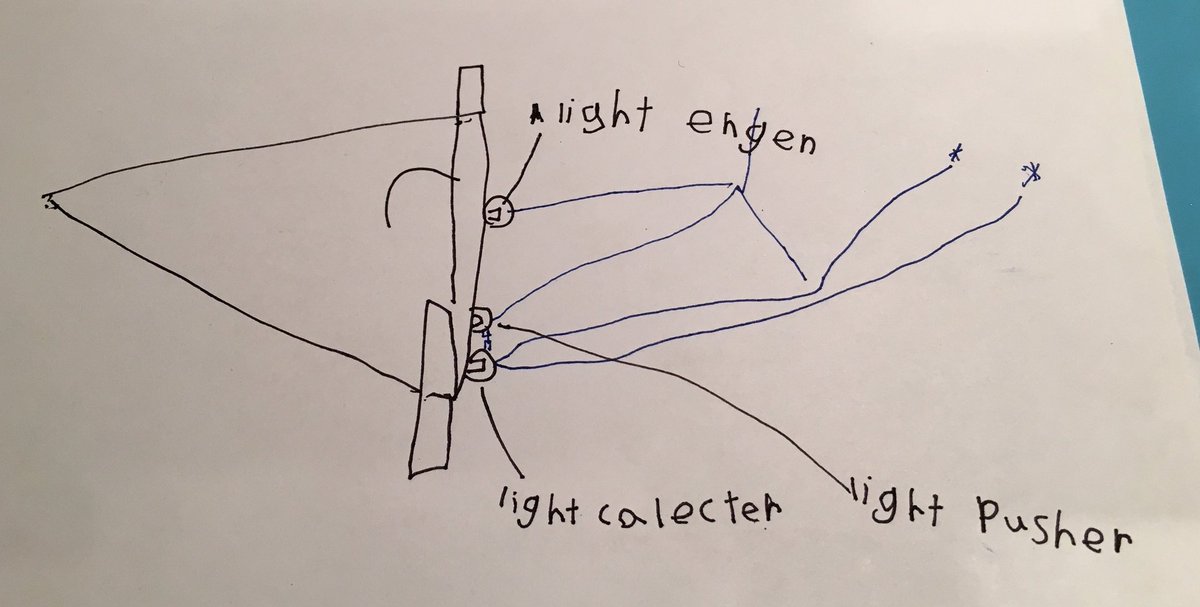 light engen
light calecter
light Pusher